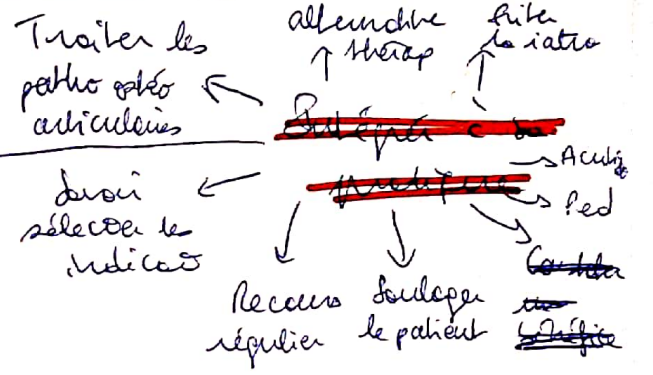 Traiter les
patho ostéo
articulaires
alternative
thérap
Eviter
la iatro
Savoir
sélecter les
indicaō
Recours
régulier
Soulager
le patient
Ped